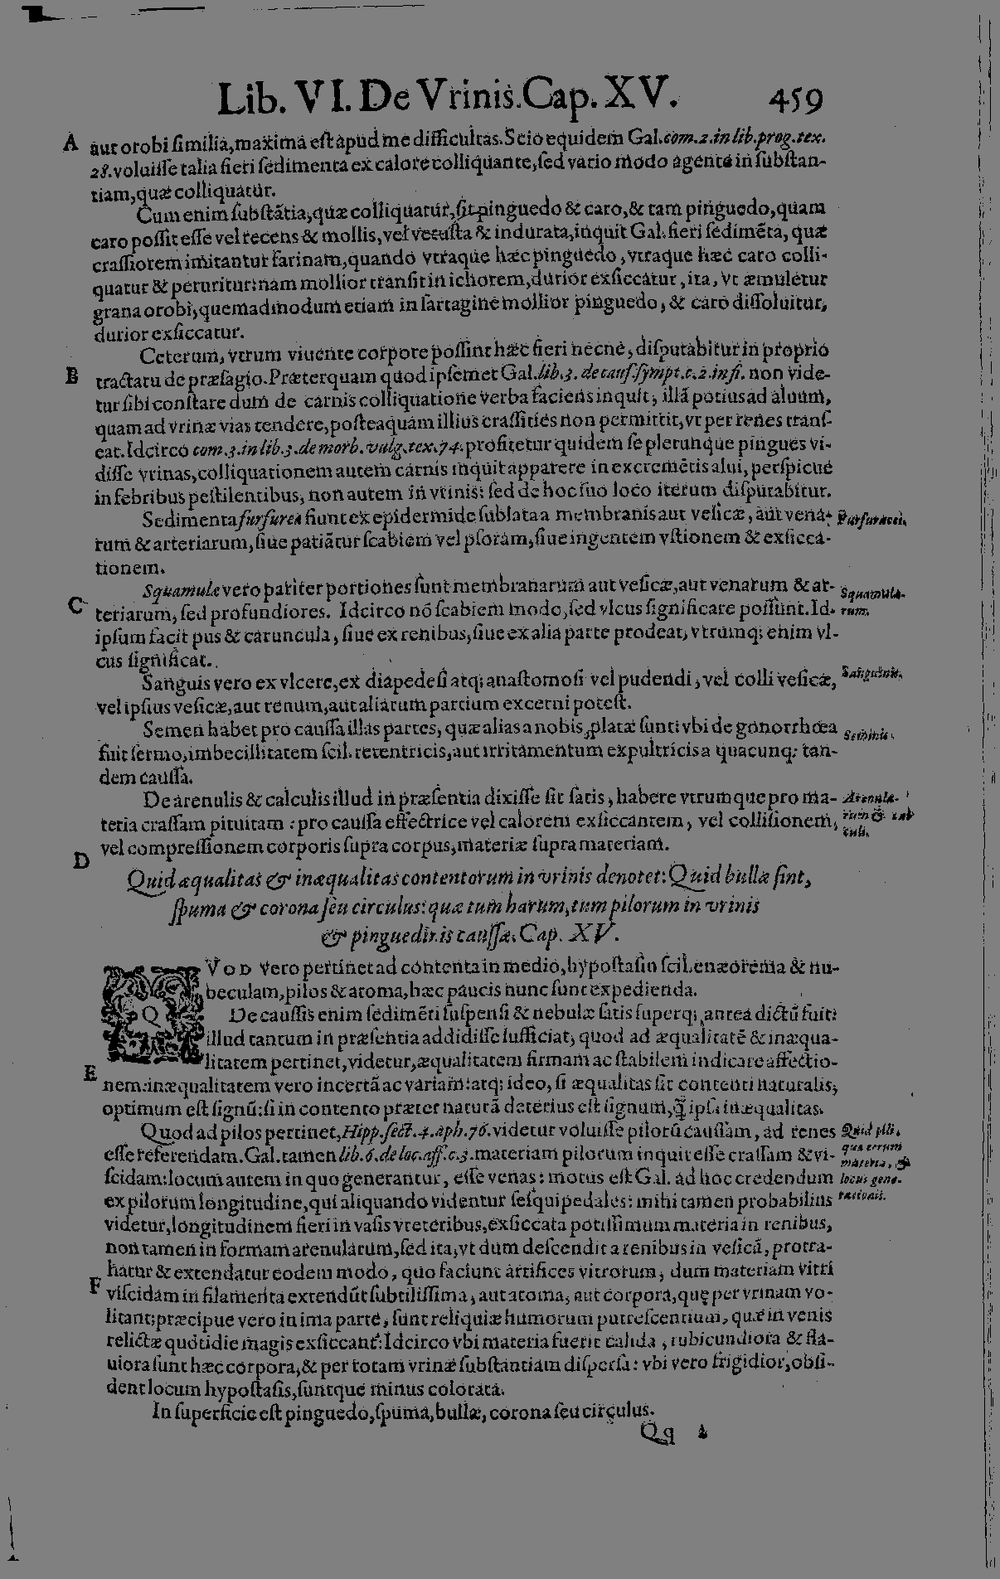 Lib. VI. De Vrinis. Cap. XV. 459
A aut orobi ſimilia, maxima eſt apud me difficultas. Scio equidem Gal. com. 2. in lib. prog. tex.
28. voluiſſe talia fieri ſedimenta ex calore colliquante, ſed vario modo agente in ſubſtan-
tiam, quæ colliquatur.
Cum enim ſubſtātia, quæ colliquatur, ſit pinguedo & caro, & tam pinguedo, quam
caro poſſit eſſe vel recens & mollis, vel vetuſta & indurata, inquit Gal. fieri ſedimēta, quæ
craſſiorem imitantur farinam, quando vtraque hæc pinguedo, vtraque hæc caro colli-
quatur & peruritur: nam mollior tranſit in ichorem, durior exſiccatur, ita, vt æmuletur
grana orobi, quemadmodum etiam in ſartagine mollior pinguedo, & caro diſſoluitur,
durior exſiccatur.
Ceterum, vtrum viuente corpore poſſint hæc fieri necne, diſputabitur in proprio
B tractatu de præſagio. Præterquam quod ipſemet Gal. lib. 3. de cauſ. ſympt. c. 2. in fi. non vide-
tur ſibi conſtare dum de carnis colliquatione verba faciens inquit, illā potius ad aluum,
quam ad vrinæ vias tendere, poſteaquam illius craſſities non permittit, vt per renes tranſ-
eat. Idcirco com. 3. in lib. 3. de morb. vulg. tex. 74. profitetur quidem ſe plerunque pingues vi-
diſſe vrinas, colliquationem autem carnis inquit apparere in excremētis alui, perſpicue
in febribus peſtilentibus, non autem in vrinis: ſed de hoc ſuo loco iterum diſputabitur.
Sedimenta furfurea fiunt ex epidermide ſublata a membranis aut veſicæ, aut vena-
Furfuracei.
rum & arteriarum, ſiue patiātur ſcabiem vel pſoram, ſiue ingentem vſtionem & exſicca-
tionem.
Squamulæ vero pariter portiones ſunt membranarum aut veſicæ, aut venarum & ar-
Squamula-
C teriarum, ſed profundiores. Idcirco nō ſcabiem modo, ſed vlcus ſignificare poſſunt. Id-
rum.
ipſum facit pus & caruncula, ſiue ex renibus, ſiue ex alia parte prodeat, vtrumq; enim vl-
cus ſignificat.
Sanguis vero ex vlcere, ex diapedeſi atq; anaſtomoſi vel pudendi, vel colli veſicæ,
Sanguinis.
vel ipſius veſicæ, aut renum, aut aliarum partium excerni poteſt.
Semen habet pro cauſſa illas partes, quæ alias a nobis platæ ſunt: vbi de gonorrhœa
Seminis.
fuit ſermo, imbecillitatem ſcil. retentricis, aut irritamentum expultricis a quacunq; tan-
dem cauſſa.
De arenulis & calculis illud in præſentia dixiſſe ſit ſatis, habere vtrumque pro ma-
Arenula-
teria craſſam pituitam: pro cauſſa effectrice vel calorem exſiccantem, vel colliſionem,
rum & cal-
culi.
vel compreſſionem corporis ſupra corpus, materiæ ſupra materiam.
D
Quid æqualitas & inæqualitas contentorum in vrinis denotet: Quid bullæ ſint,
ſpuma & corona ſeu circulus: quæ tum harum, tum pilorum in vrinis
& pinguedinis cauſſæ. Cap. XV.
QVOD vero pertinet ad contenta in medio, hypoſtaſin ſcil. enæorema & nu-
beculam, pilos & atoma, hæc paucis nunc ſunt expedienda.
De cauſſis enim ſedimēti ſuſpenſi & nebulæ ſatis ſuperq; antea dictū fuit:
illud tantum in præſentia addidiſſe ſufficiat, quod ad æqualitatē & inæqua-
litatem pertinet, videtur, æqualitatem firmam ac ſtabilem indicare affectio-
E nem: inæqualitatem vero incertā ac variam: atq; ideo, ſi æqualitas ſit contenti naturalis,
optimum eſt ſignū: ſi in contento præter naturā deterius eſt ſignum, q̄ ipſa inæqualitas.
Quod ad pilos pertinet, Hipp. ſect. 4. aph. 76. videtur voluiſſe pilorū cauſſam, ad renes
Quid pili,
eſſe referendam. Gal. tamen lib. 6. de loc. aff. c. 3. materiam pilorum inquit eſſe craſſam & vi-
materia, &
ſcidam: locum autem in quo generantur, eſſe venas: motus eſt Gal. ad hoc credendum
locus gene-
ex pilorum longitudine, qui aliquando videntur ſeſquipedales: mihi tamen probabilius
rationis.
videtur, longitudinem fieri in vaſis vreteribus, exſiccata potiſſimum materia in renibus,
non tamen in formam arenularum, ſed ita, vt dum deſcendit a renibus in veſicā, protra-
hatur & extendatur eodem modo, quo faciunt artifices vitrorum, dum materiam vitri
F viſcidam in filamenta extendūt ſubtiliſſima, aut atoma, aut corpora, quę per vrinam vo-
litant: præcipue vero in ima parte, ſunt reliquiæ humorum putreſcentium, quæ in venis
relictæ quotidie magis exſiccant: Idcirco vbi materia fuerit calida, rubicundiora & fla-
uiora ſunt hæc corpora, & per totam vrinæ ſubſtantiam diſperſa: vbi vero frigidior, obſi-
dent locum hypoſtaſis, ſuntque minus colorata.
In ſuperficie eſt pinguedo, ſpuma, bullæ, corona ſeu circulus.
Qq